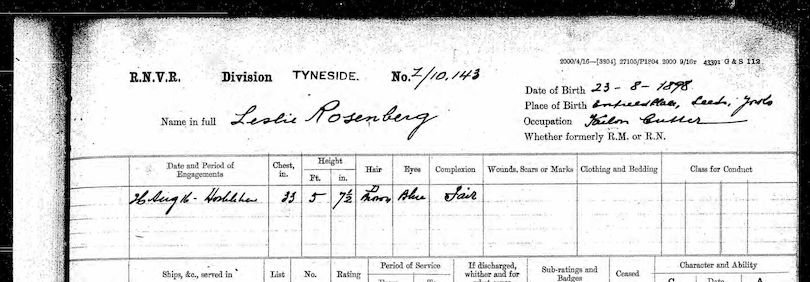 2000/4/16—[3804] 27105/P1804 2000 9/16r 43391 G & S 112
R.N.V.R. Division TYNESIDE. No. Z/10,143
Date of Birth 23 - 8 - 1898
Place of Birth Enfield Place, Leeds, Yorks
Name in full Leslie Rosenberg
Occupation Tailor Cutter
Whether formerly R.M. or R.N.
Date and Period of Engagements Chest, in. Height Ft. in. Hair Eyes Complexion Wounds, Scars or Marks Clothing and Bedding Class for Conduct
26 Aug 16 - Hostilities 33 5 7½ Brown Blue Fair
Ships, &c., served in List No. Rating Period of Service If discharged, whither and for Sub-ratings and Badges Ceased Character and Ability
Date A